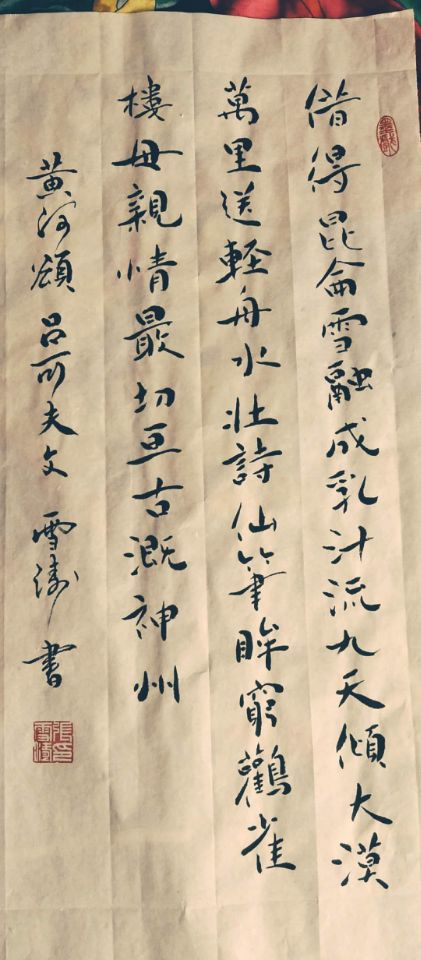 借得昆侖雪融成乳汁流九天傾大漠
萬里送輕舟水壯詩仙筆眸窮鸛雀
樓母親情最切亘古溉神州
黃河頌 呂可夫文 雪濤書